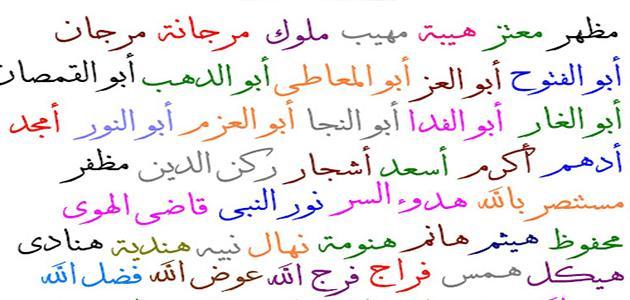 مظهر معتز هيبة مهيب ملوك مرجانة مرجان
أبو الفتوح أبو العز أبو المعاطى أبو الدهب أبو القمصان
أبو الغار أبو الفدا أبو النجا أبو العزم أبو النور أمجد
أدهم أكرم أسعد أشجار ركن الدين مظفر
مستنصر بالله هدوء السر نور النبى قاضى الهوى
محفوظ هيثم هانم هنومة نهال نبيه هندية هنادى
هيكل همس فراج فرج الله عوض الله فضل الله